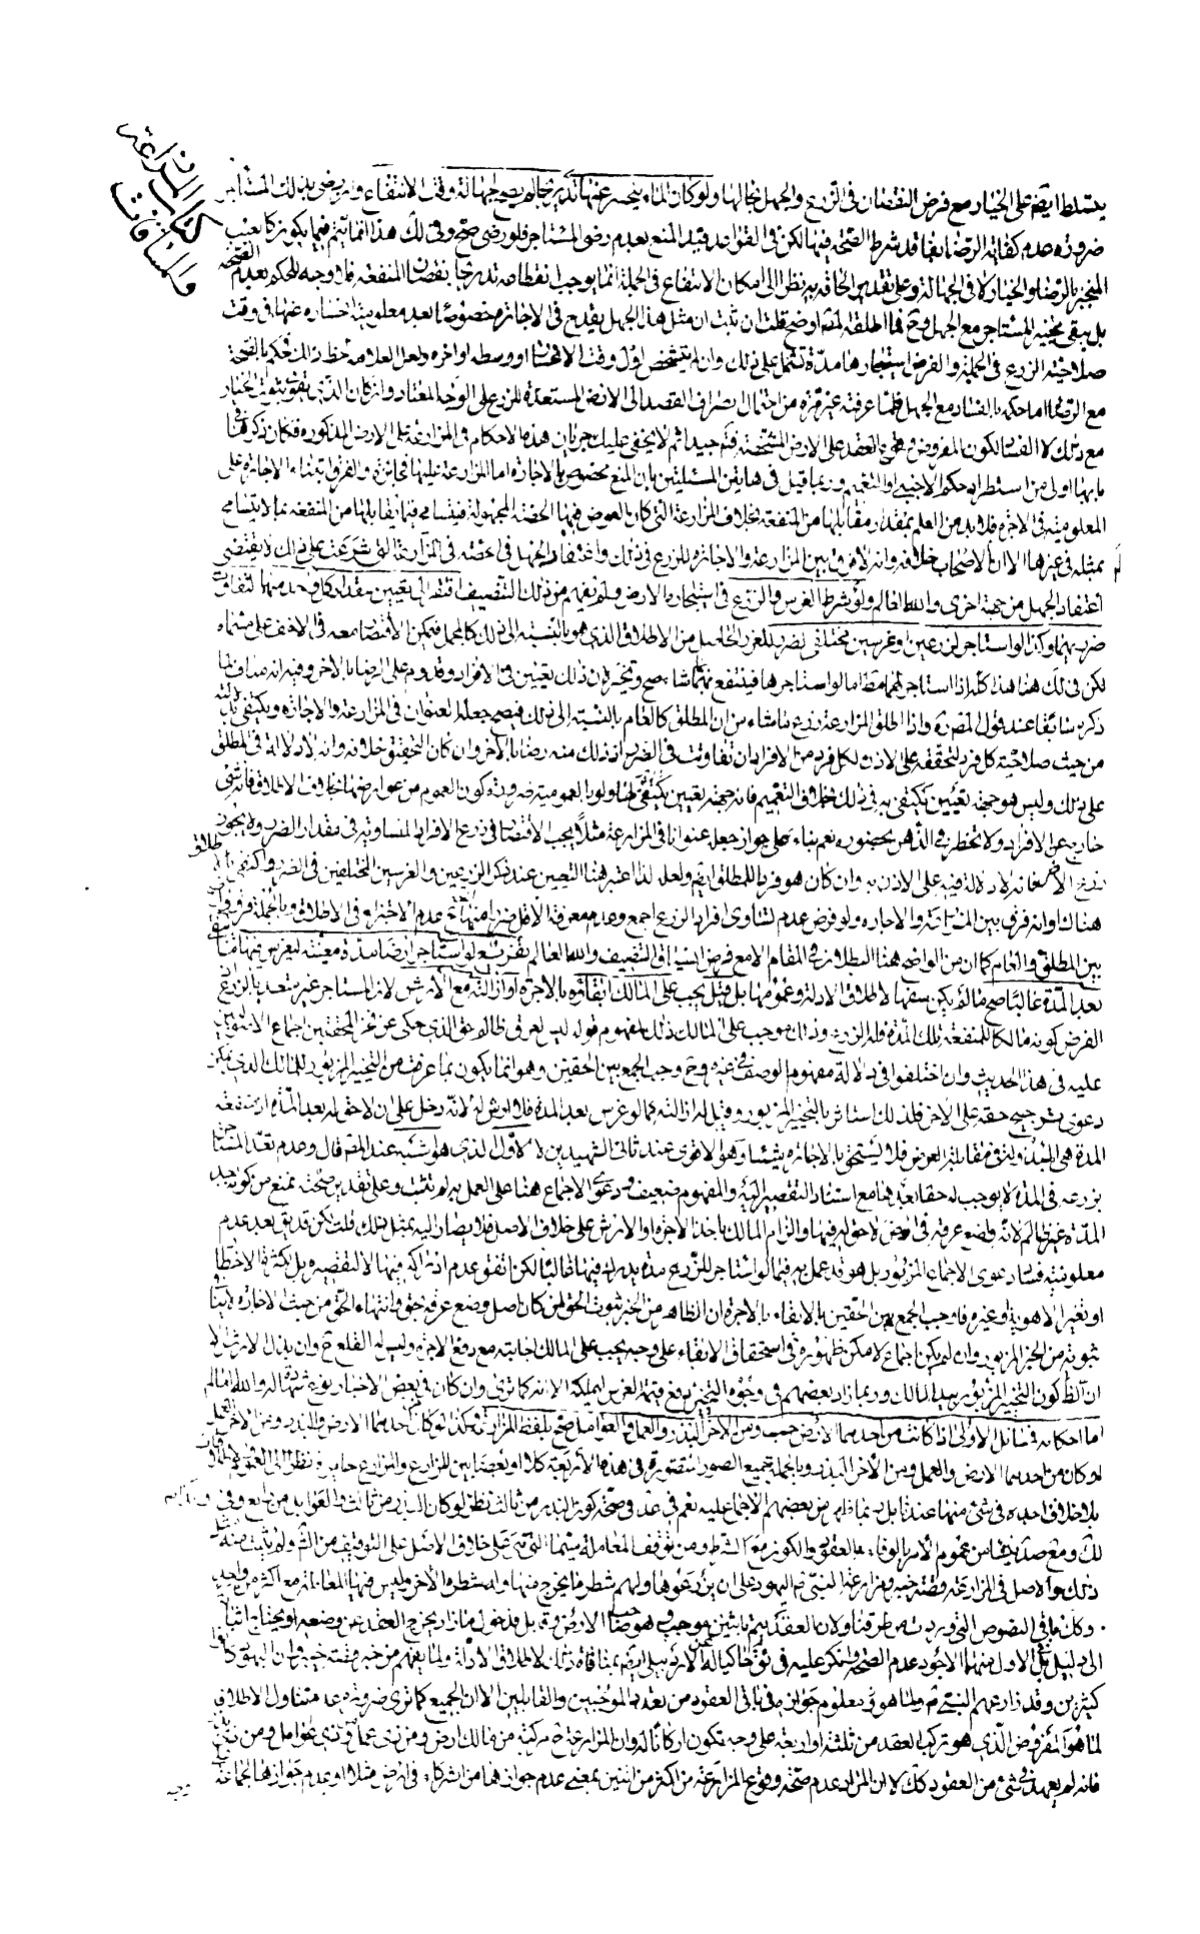 كتاب المزارعة
والمساقات
يتسلط ايضا على الخيار مع فرض النقصان في الزرع والجهل بحالها ولو كان الماء ينحسر عنها تدريجا لم يصح لجهالة وقت الانتفاع ولو رضي بذلك المستأجر
ضرورة عدم كفاية الرضا بفاقد شرط الصحة فيها لكن في القواعد قيد المنع بعدم رضى المستاجر فلو رضى صح وفي لك هذا انما يتم فيما يكون كالعيب
المنجبر بالرضا والخيار لا في الجهالة وعلى تقدير الحاقه به نظرا الى امكان الانتفاع في الجملة انما يوجب انقطاعه تدريجا نقصان المنفعة فلا وجه للحكم بعدم الصحة
بل يبقى تخير المستاجر مع الجهل وح فما اطلقه المص اوضح قلت ان ثبت ان مثل هذا الجهل يقدح في الاجازه خصوصا بعد معلومية انحساره عنها في وقت
صلاحية الزرع في الجملة والفرض استيجارها مدة تشتمل على ذلك وان لم يتشخص اول وقت الانحسار ووسطه اواخره ولعل العلامة لحظ ذلك فحكم بالصحة
مع الرضا اما حكمه بالفساد مع الجهل فلما عرفته غير مرة من احتمال انصراف القصد الى الارض المستعدة للزرع على الوجه المعتاد وان كان الذي يقوى ثبوت الخيار
مع ذلك لا الفساد لكون المفروض وقوع العقد على الارض المشخصة فتم جيدا ثم لا يخفى عليك جريان هذه الاحكام في المزارعة على الارض المذكوره فكان ذكرها في
بابها اولى من استطراد حكم الاجنبي او التعميم وربما قيل في هاتين المسئلتين بان المنع مخصوص بالاجارة اما المزارعة عليها فجائزة والفرق ابتناء الاجارة على
المعلومية في الاجرة فلا بد من العلم بمقدار مقابلها من المنفعة بخلاف المزارعة التي كان العوض فيها الحصة المجهولة فيتسامح فيما يقابلها من المنفعة بما لا يتسامح
بمثله في غيرها الا ان الاصحاب خلافه وانه لا فرق بين المزارعة والاجارة للزرع في ذلك واغتفار الجهل في الحصة في المزارعة التي شرعت على ذلك لا يقتضي
اغتفار الجهل من جهة اخرى والله العالم ولو شرط الغرس والزرع في استيجاره الارض ولم يفهم من ذلك التنصيف افتقر الى تعيين مقدار كل واحد منهما لتفاوت
ضرريهما وكذا لو استاجر لزرعين او غرسين مختلفي الضرر للغرر الحاصل من الاطلاق الذي هو بالنسبة الى ذلك كالمجمل
لكن في لك هنا هذا كله اذا استاجر لهما مطلقا اما لو استاجرها لينتفع بهما ما شاء صح وتخير لان ذلك تعيين في الافراد وقدوم على الرضا بالاخر وفيه انه مناف لما
ذكره سابقا عند قول المص ره واذا اطلق المزارعة زرع ما شاء من ان المطلق كالعام بالنسبة الى ذلك فيصح جعله العنوان في المزارعة والاجارة ويكتفى بدلالته
من حيث صلاحية كل فرد لتحققه على الاذن لكل فرد من الافراد وان تفاوتت في الضرر اذ ذلك منه رضا بالاخر وان كان التحقيق خلافه وانه لا دلالة في المطلق
على ذلك وليس هو جهة تعيين يكتفى به في ذلك بخلاف التعميم فانه جهة تعيين يكتفى بها
خارج عن الافراد ولا تخطر في الذهن بحضوره نعم بناء على جواز جعله عنوانا في المزارعة مثلا يجب الاقتصار في زرع الافراد المتساوية في مقدار الضرر ولا يجوز
زرع الاضر فانه لا دلالة فيه على الاذن به وان كان هو فردا للمطلق ايضا ولعله لذا اعتبر هنا التعيين عند ذكر الزرعين والغرسين المختلفين في الضرر واكتفى بالاطلاق
هناك وانه فرق بين المزارعة والاجارة ولو فرض عدم تساوى افراد الزرع اجمع وعدم معرفة الاقل ضررا منها
بين المطلق والعام كما ان من الواضح هنا البطلان في المقام الا مع فرض انسياق التنصيف والله العالم تفريع لو استاجر ارضا مدة معينة ليغرس فيها ما يبقى
بعد المدة غالبا صح ما لم يكن سفها لاطلاق الادلة وعمومها بل قيل يجب على المالك ابقاؤه بالاجرة او ازالته مع الارش لان المستاجر غير متعد بالزرع
الفرض كونه مالكا للمنفعة تلك المدة فله الزرع وذلك موجب على المالك ذلك لمفهوم قوله ليس لعرق ظالم حق الذي حكي عن فخر المحققين اجماع الاصوليين
عليه في هذا الحديث وان اختلفوا في دلالة مفهوم الوصف في غيره وح وجب الجمع بين الحقين وهو انما يكون بما عرفت من التخيير المزبور للمالك الذي يمكن
دعوى ترجيح حقه على الاخر فلذلك استاثر بالتخيير المزبور وقيل له ازالته كما لو غرس بعد المدة فلا ارش له لانه دخل على ان لا حق له بعد المدة
المدة هي المبذولة في مقابلة العوض فلا يستحق بالاجارة شيئا وهو الاقوى عند ثاني الشهيدين لا الاول الذي هو اشبه عند المص قال وعدم تعدى المستاجر
بزرعه في المدة لا يوجب له حقا بعدها مع استناد التقصير اليه والمفهوم ضعيف ودعوى الاجماع هنا على العمل به لم تثبت وعلى تقدير صحته نمنع من كونه بعد
المدة غير ظالم لانه واضع عرقه في ارض لا حق له فيها والزام المالك باخذ الاجرة او الارش على خلاف الاصل فلا يصار اليه بمثل ذلك قلت لكن قد يق بعد عدم
معلومية فساد دعوى الاجماع المزبور بل هو قد عمل به فيما لو استاجر للزرع مدة يدرك فيها غالبا لكن اتفق عدم ادراكه فيها لا لتقصيره بل بكثرة الامطار
او تغير الاهوية او غيره فاوجب الجمع بين الحقين بالابقاء بالاجرة ان الظاهر من الخبر ثبوت الحق لمن كان اصل وضع عرقه بحق وانتهاء الحق من حيث الاجارة لا ينافي
ثبوته من الخبر المزبور وان لم يكن اجماع لامكن ظهوره في استحقاق الابقاء على وجه يجب على المالك اجابته مع دفع الاجرة وليس له القلع ح وان بذل الارش الا
ان الظ كون التخيير المزبور بيد المالك وربما زاد بعضهم في وجوه التخيير دفع قيمة الغرس ليملكه الا انه كما ترى وان كان في بعض الاخبار نوع شهادة له والله العالم
اما احكامه فمسائل الاولى اذا كانت من احدهما الارض حسب ومن الاخر البذر والعمل والعوامل صح بلفظ المزارعة وكذا لو كان من احدهما الارض والبذر ومن الاخر العمل
او كان من احدهما الارض والعمل ومن الاخر البذر وبالجملة جميع الصور المتصورة في هذه الاربعة كلا او بعضا بين الزارع والمزارع جايزة نظرا الى العموم والاطلاق
بلا خلاف اجده في شئ منها عندنا بل ربما ظهر من بعضهم الاجماع عليه نعم في عد في صحة كون البذر من ثالث نظر لو كان البذر من ثالث والعوامل من رابع وفي
لك ومع صدقها من عموم الامر بالوفاء بالعقود والكون مع الشرط ومن توقف المعاملة سيما التي هي على خلاف الاصل على التوقيف من الش ولم يثبت مثله
ذلك والاصل في المزارعة قصة خيبر ومزارعة النبي ص اليهود على ان يزرعوها ولهم شطر ما يخرج منها وله شطره الاخر وليس فيها المعاملة مع اكثر من واحد
وكك باقي النصوص التي وردت من طرقنا ولان العقد يتم باثنين موجب وهو صاحب الارض وقابل فدخول ما زاد يخرج العقد عن وضعه او يحتاج اثباته
الى دليل بل الاول منهما الاجود عدم الصحة
كثيرين وقد زارعهم النبي ص ثم ولما هو معلوم جوازه في باقي العقود من تعدد الموجبين والقابلين الا ان الجميع كما ترى ضرورة عدم تناول الاطلاق
لما هو المفروض الذي هو تركب العقد من ثلثة او اربعة على وجه تكون اركانا له وان المزارعة ح مركبة من مالك ارض ومن ذى عمل ومن ذى عوامل ومن ذى بذر
فانه لم يعهد في شئ من العقود كك لا ان المراد عدم صحة وقوع المزارعة من اكثر من اثنين بمعنى عدم جوازها من الشركاء في ارض مثلا او عدم جوازها لجماعة